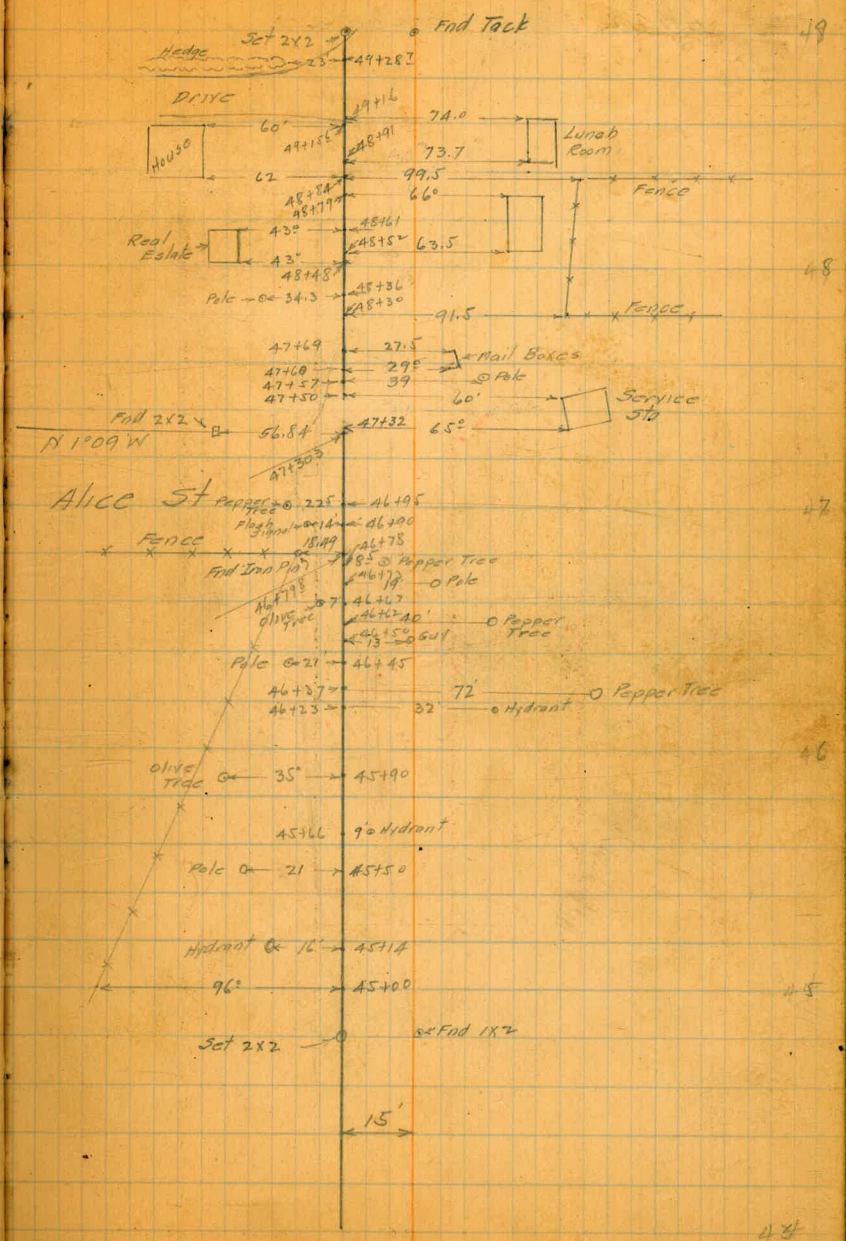 Set 2x2 Fnd Tack 48
Hedge 23' 49+28⁷
Drive 49+16
60' 74.0
House 49+15⁵ 48+91 Lunch Room
73.7
62 99.5
48+84 66⁰ Fence
48+79
43⁰ 48+61
Real Estate 48+5² 63.5
43⁰ 48
48+48
Pole 34.3 48+36
48+30 Fence
91.5
47+69 27.5 Mail Boxes
47+60 29⁰
47+57 39 Pole
47+50 60' Service Sta
Fnd 2x2 56.84 47+32 65⁰
N 1°09' W
47+30³
Alice St Pepper Tree 22⁵ 46+95 47
Flash Signal 14' 46+90
Fence 18.49 46+78
Fnd Iron Pin 8⁵ Pepper Tree
46+79⁸ 19' Pole
Olive Tree 7' 46+67
46+62 40' Pepper Tree
46+50 13 Guy
Pole 21' 46+45
46+37 72' Pepper Tree
46+23 32' Hydrant
46
Olive Tree 35⁰ 45+90
45+66 9' Hydrant
Pole 21 45+50
Hydrant 16' 45+14
96⁰ 45+00 45
Set 2x2 Fnd 1x2
15'